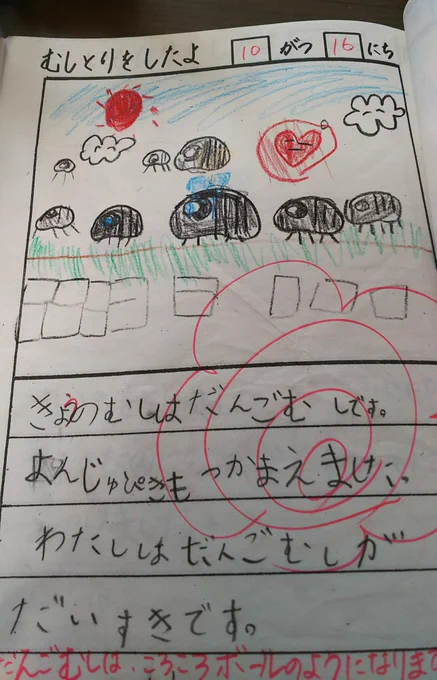 むしとりをしたよ 10 がつ 16 にち
きょうのむしはだんごむしです。
よんじゅぴきもつかまえました。
わたしはだんごむしが
だいすきです。
だんごむしは、ころころボールのようになりま